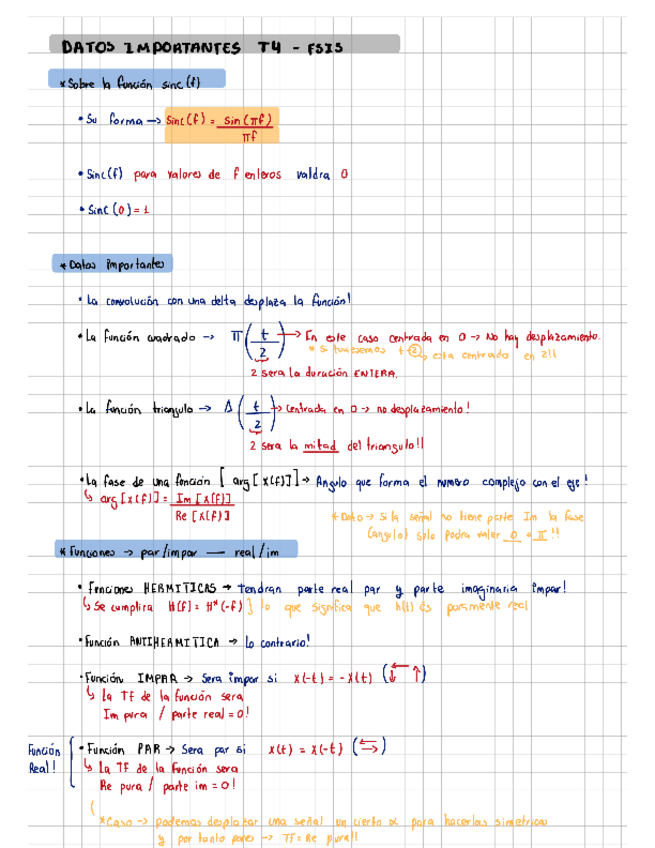 DATOS IMPORTANTES T4 - FSIS
* Sobre la función sinc(f)
• Su forma → Sinc(f) = sin(πf) / πf
• Sinc(f) para valores de f enteros valdra 0
• Sinc(0) = 1
* Datos importantes
• La convolución con una delta desplaza la función!
• La función cuadrado → Π(t/2) → En este caso centrada en 0 → No hay desplazamiento.
* Si tuviesemos t-2 → esta centrado en 2!!
2 sera la duración ENTERA.
• La función triangulo → Δ(t/2) → Centrada en 0 → no desplazamiento!
2 sera la mitad del triangulo!!
• La fase de una función [arg[X(f)]] → Angulo que forma el numero complejo con el eje!
↳ arg[X(f)] = Im[X(f)] / Re[X(f)]
* Dato → Si la señal no tiene parte Im la fase
(angulo) solo podra valer 0 o π!!
* Funciones → par/impar — real/im
• Funciones HERMITICAS → tendran parte real par y parte imaginaria impar!
↳ Se cumplira H(f) = H*(-f) } lo que significa que h(t) es puramente real
• Función ANTIHERMITICA → lo contrario!
• Función IMPAR → Sera impar si x(-t) = -x(t) (↓ ↑)
↳ la TF de la función sera
Im pura / parte real = 0!
Función Real! { • Función PAR → Sera par si x(t) = x(-t) (⇆)
↳ La TF de la función sera
Re pura / parte im = 0!
* Caso → podemos desplazar una señal un cierto α para hacerlas simetricas
y por tanto pares → TF = Re pura!!